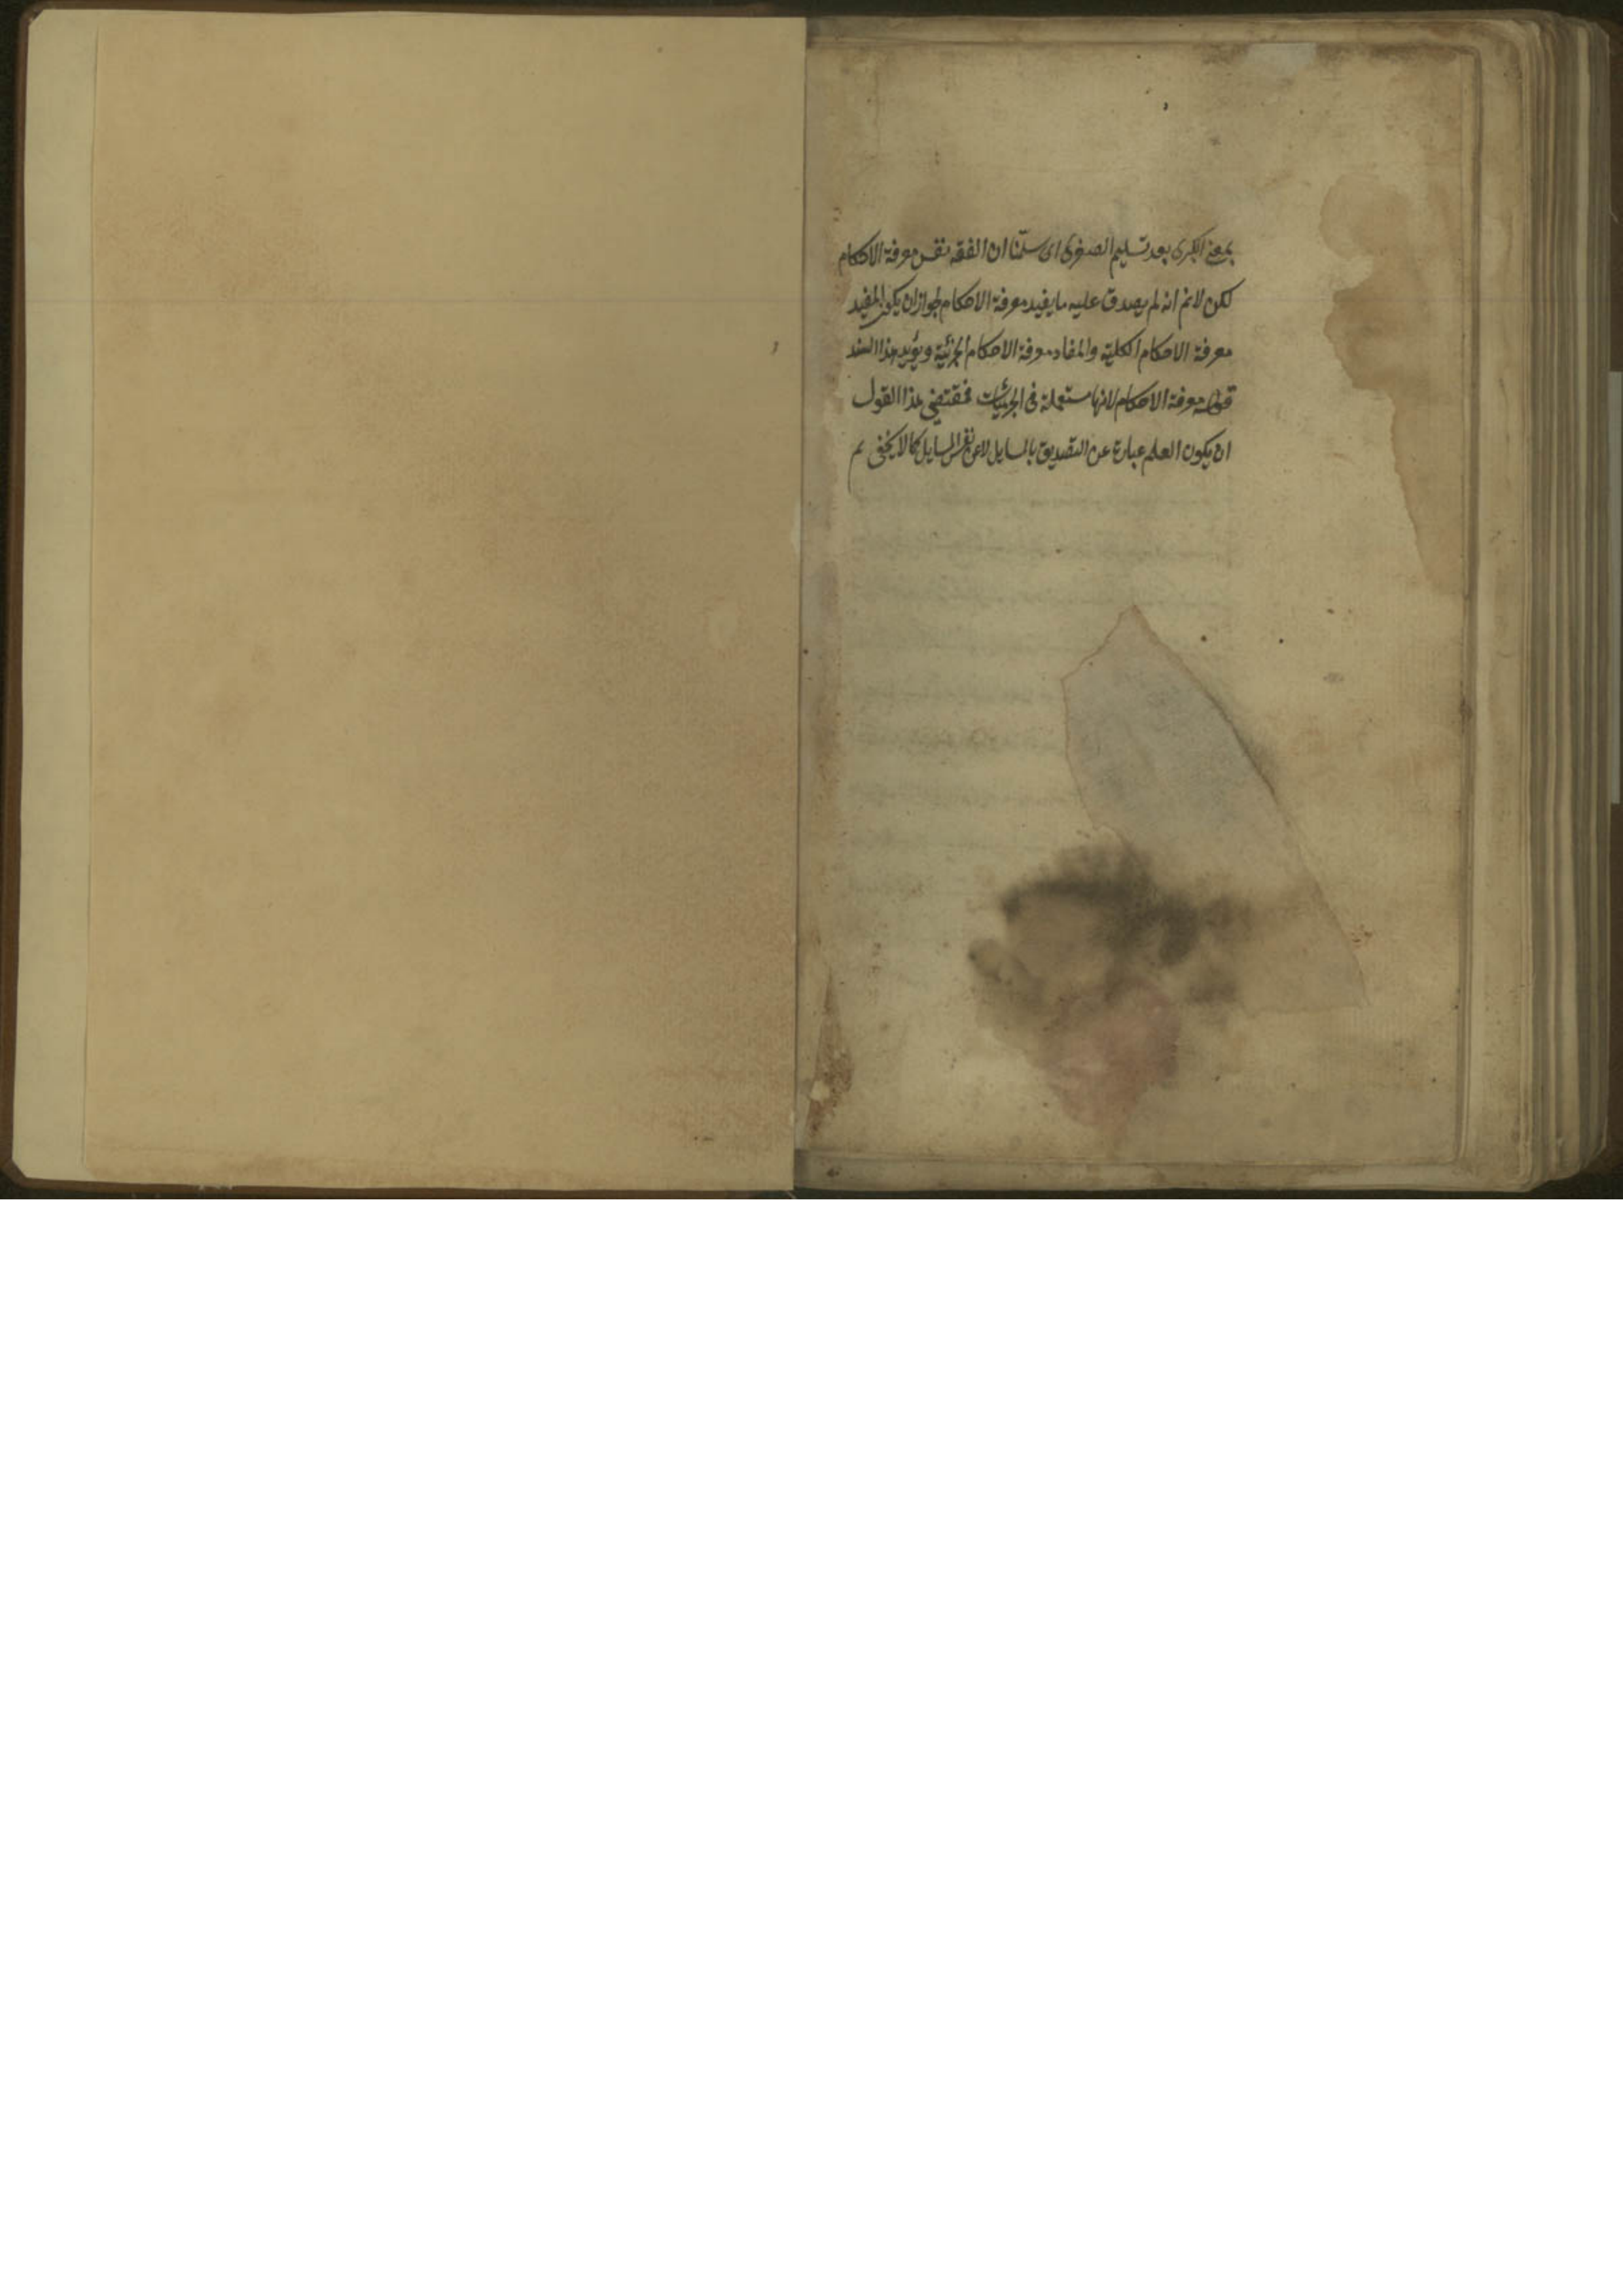 بمنع الكبرى بعد تسليم الصغرى اى سلّمنا ان الفقه نفس معرفة الاحكام
لكن لانم انه لم يصدق عليه ما يفيد معرفة الاحكام لجواز ان يكون المفيد
معرفة الاحكام الكلية والمفاد معرفة الاحكام الجزئية ويؤيد هذا السند
قوله معرفة الاحكام لانها مستعملة فى الجزئيات فمقتضى هذا القول
ان يكون العلم عبارة عن التصديق بالمسايل لا عن نفس المسايل كما لا يخفى